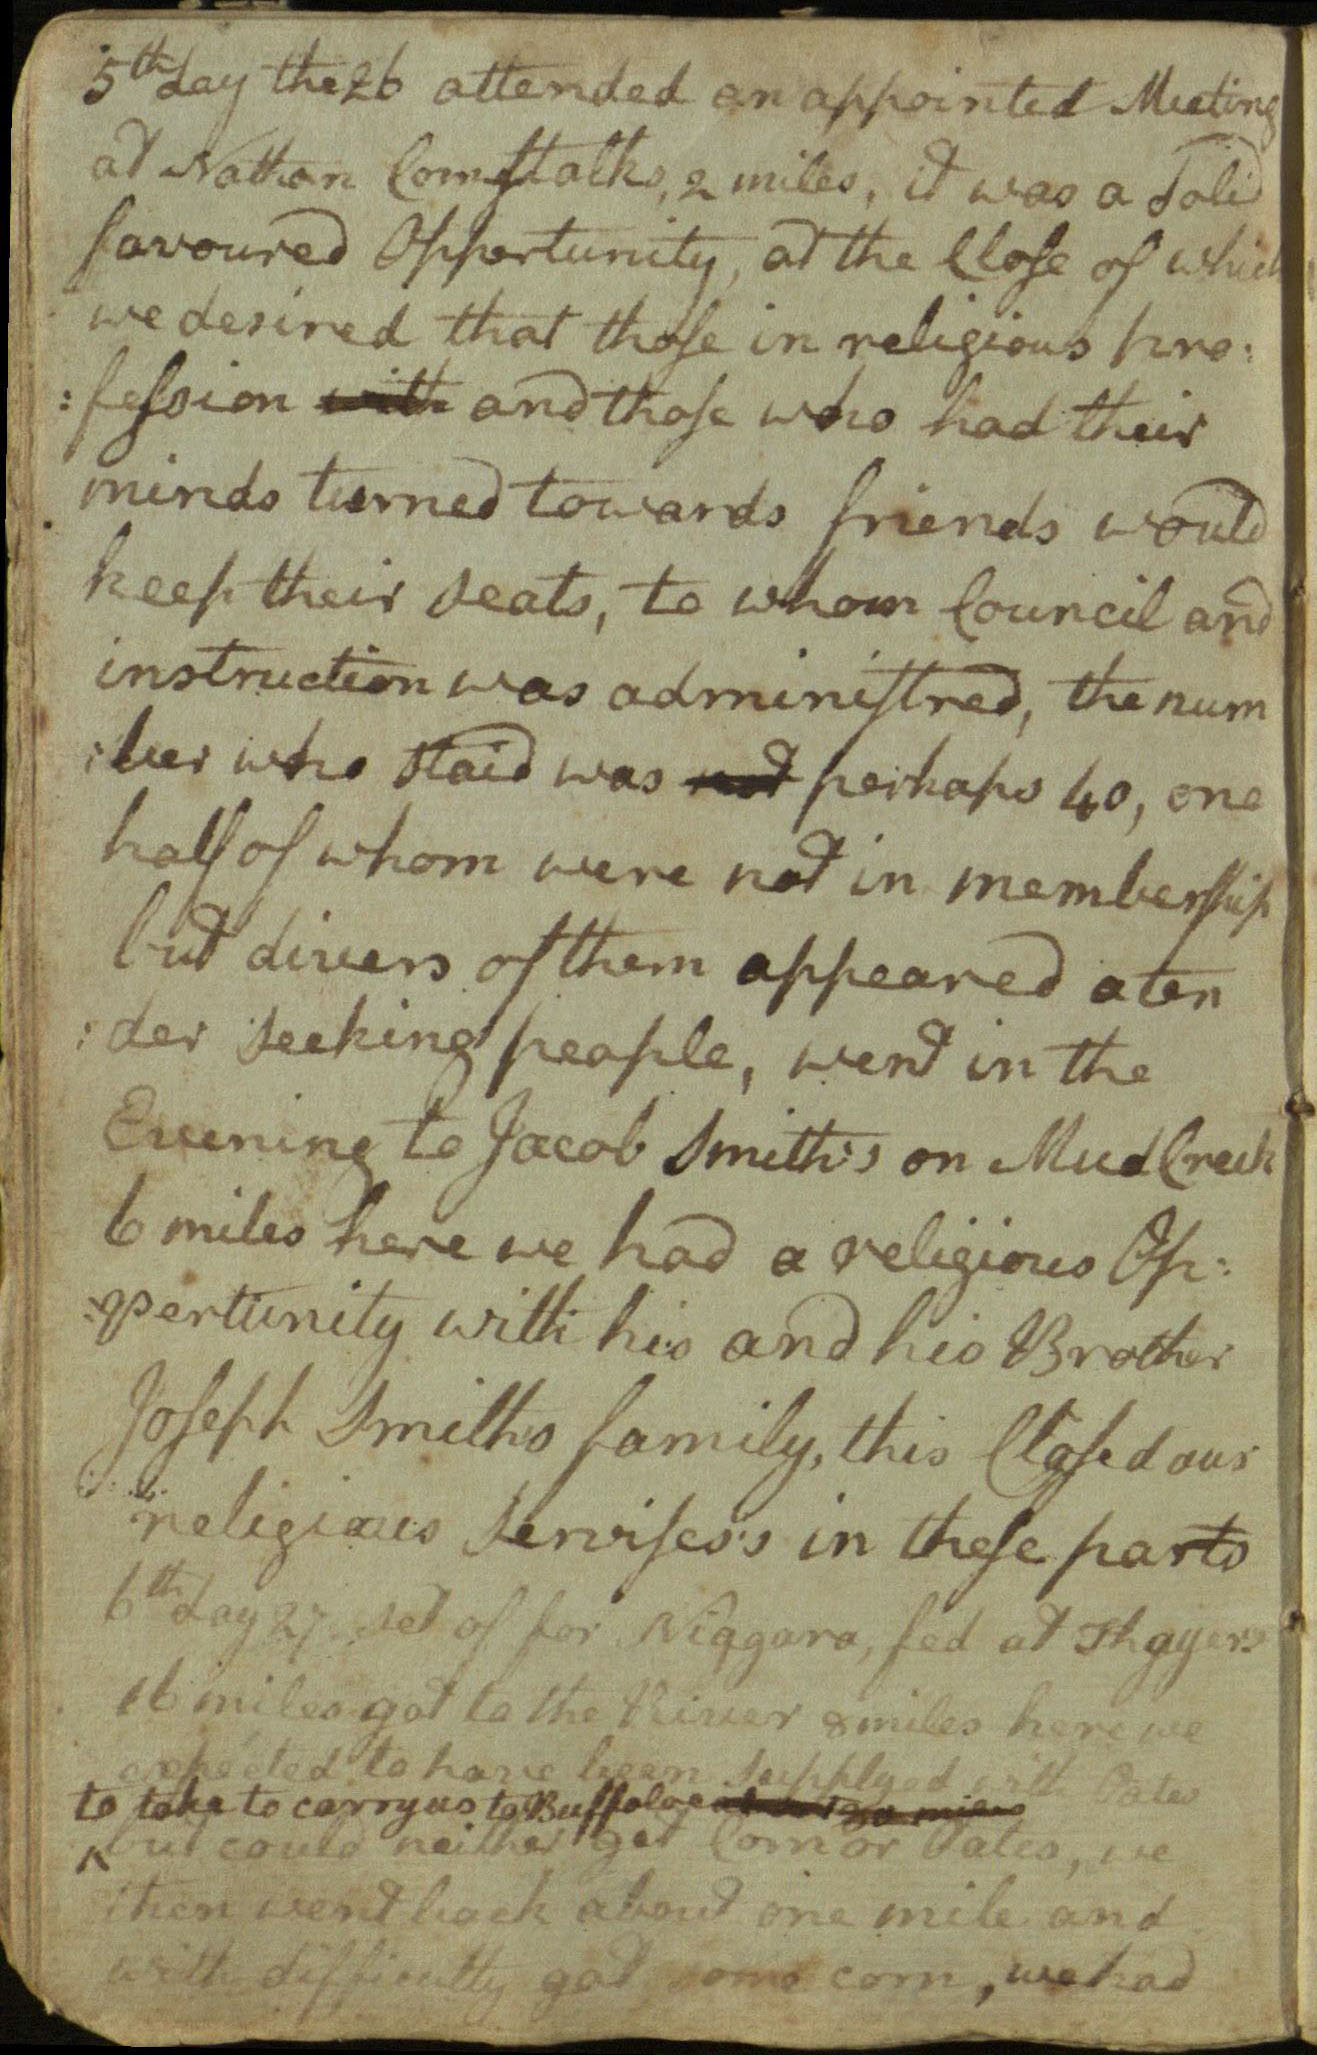 5th day the 26 attended an appointed Meeting
at Nathan Comstalks, 2 miles, it was a Solid
favoured Oppertunity, at the Close of which
we desired that those in religious pro:
:fession with and those who had their
minds turned towards friends would
keep their seats, to whom Council and
instruction was administred, the num
:ber who staid was not perhaps 40, one
half of whom were not in membership
but divers of them appeared a ten
:der seeking people, went in the
Evening to Jacob Smith's on Mud Creek
6 miles here we had a religious Op:
:pertunity with his and his Brother
Joseph Smiths family, this Closed our
religious Servises's in these parts
6th day 27 set of for Niagara, fed at Thayers
16 miles got to the River 8 miles here we
expected to have been supplyed with Oates
to take to carry us to Buffaloe about 90 miles
^ but could neither get Corn or Oates, we
then went back about one mile and
with difficultty got some corn, we had